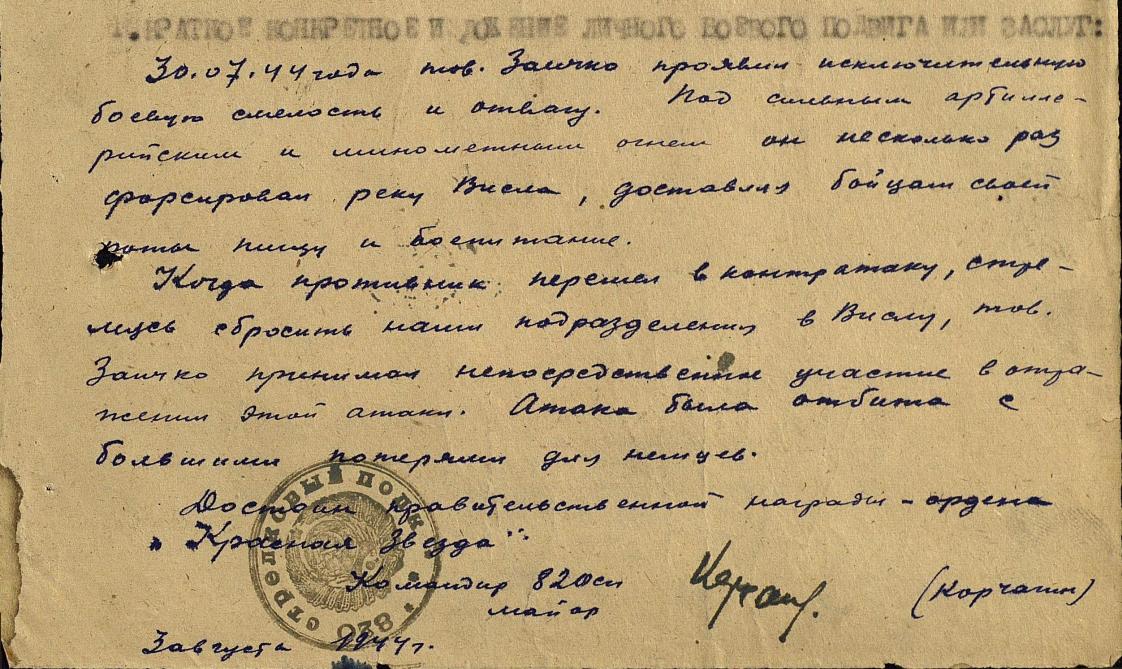 I. КРАТКОЕ КОНКРЕТНОЕ ИЗЛОЖЕНИЕ ЛИЧНОГО БОЕВОГО ПОДВИГА ИЛИ ЗАСЛУГ:
30.07.44 года тов. Заичко проявил исключительную
боевую смелость и отвагу. Под сильным артилле-
рийским и минометным огнем он несколько раз
форсировал реку Висла, доставляя бойцам своей
роты пищу и боепитание.
Когда противник перешел в контратаку, стре-
мясь сбросить наши подразделения в Вислу, тов.
Заичко принимал непосредственное участие в отра-
жении этой атаки. Атака была отбита с
большими потерями для немцев.
Достоин правительственной награды - ордена
"Красная Звезда".
Командир 820 сп
майор
(Корчагин)
3 августа 1944 г.
СТРЕЛКОВЫЙ ПОЛК
820